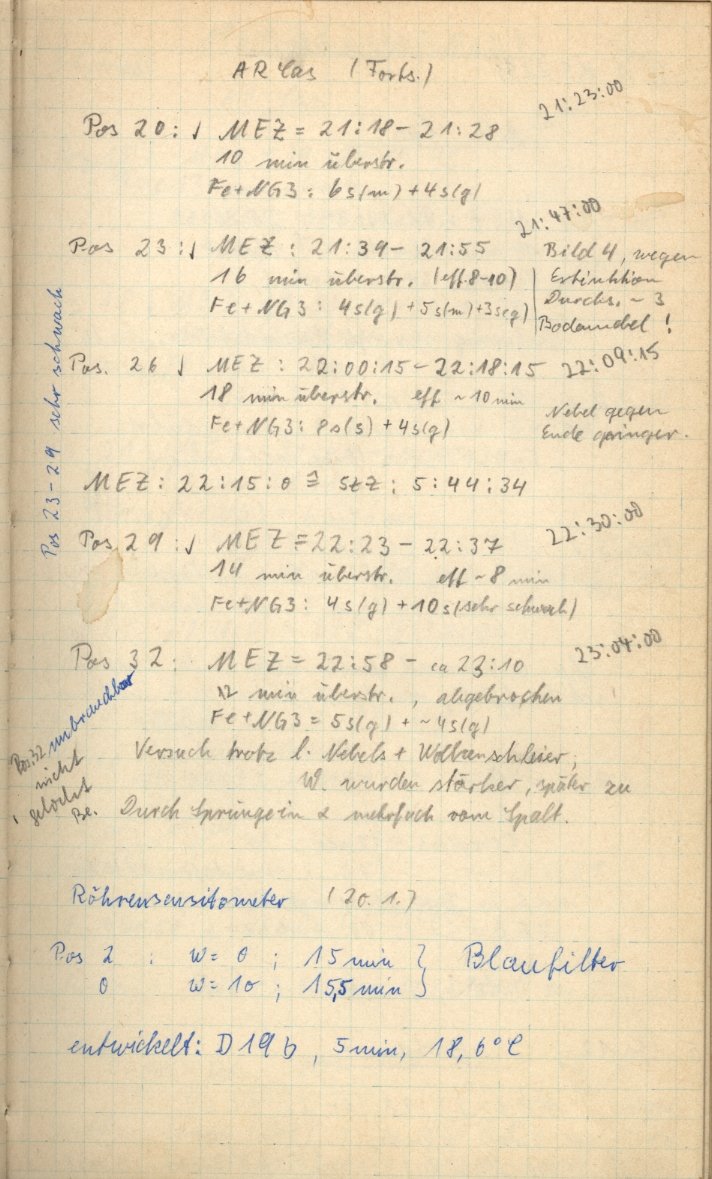 AR Cas (Forts.)
21:23:00
Pos 20: √ MEZ = 21:18 - 21:28
10 min überstr.
Fe+NG3: 6s(m) + 4s(g)
21:47:00
Pos 23: √ MEZ: 21:39 - 21:55
16 min überstr. (eff. 8-10)
Fe+NG3: 4s(g) + 5s(m) + 3s(g)
Bild 4, wegen
Extinktion
Durchs. ~ 3
Bodennebel!
Pos. 26 √ MEZ: 22:00:15 - 22:18:15
22:09:15
18 min überstr. eff ~ 10 min
Fe+NG3: 8s(s) + 4s(g)
Nebel gegen
Ende geringer.
Pos 23-29 sehr schwach
MEZ: 22:15:0 ≙ StZ: 5:44:34
22:30:00
Pos 29: √ MEZ = 22:23 - 22:37
14 min überstr. eff ~ 8 min
Fe+NG3: 4s(g) + 10s(sehr schwach)
23:04:00
Pos 32: MEZ = 22:58 - ca 23:10
12 min überstr., abgebrochen
Fe+NG3 = 5s(g) + ~4s(g)
Versuch trotz l. Nebels + Wolkenschleier;
W. wurden stärker, später zu
Durch Sprünge in α mehrfach vom Spalt.
Pos. 32 unbrauchbar
nicht
gelocht
Be.
Röhrensensitometer (20.1.)
Pos 2 : w = 0 ; 15 min } Blaufilter
0 w = 10 ; 15,5 min }
entwickelt: D 19 b, 5 min, 18,6°C